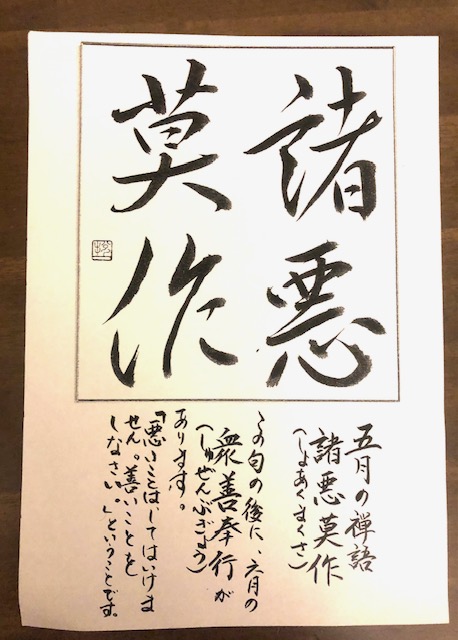 諸悪
莫作
五月の禅語
諸悪莫作
（しょあくまくさ）
この句の後に、六月の
衆善奉行が
（しゅぜんぶぎょう）
あります。
「悪いことは、してはいけま
せん。善いことを
しなさい。」ということです。